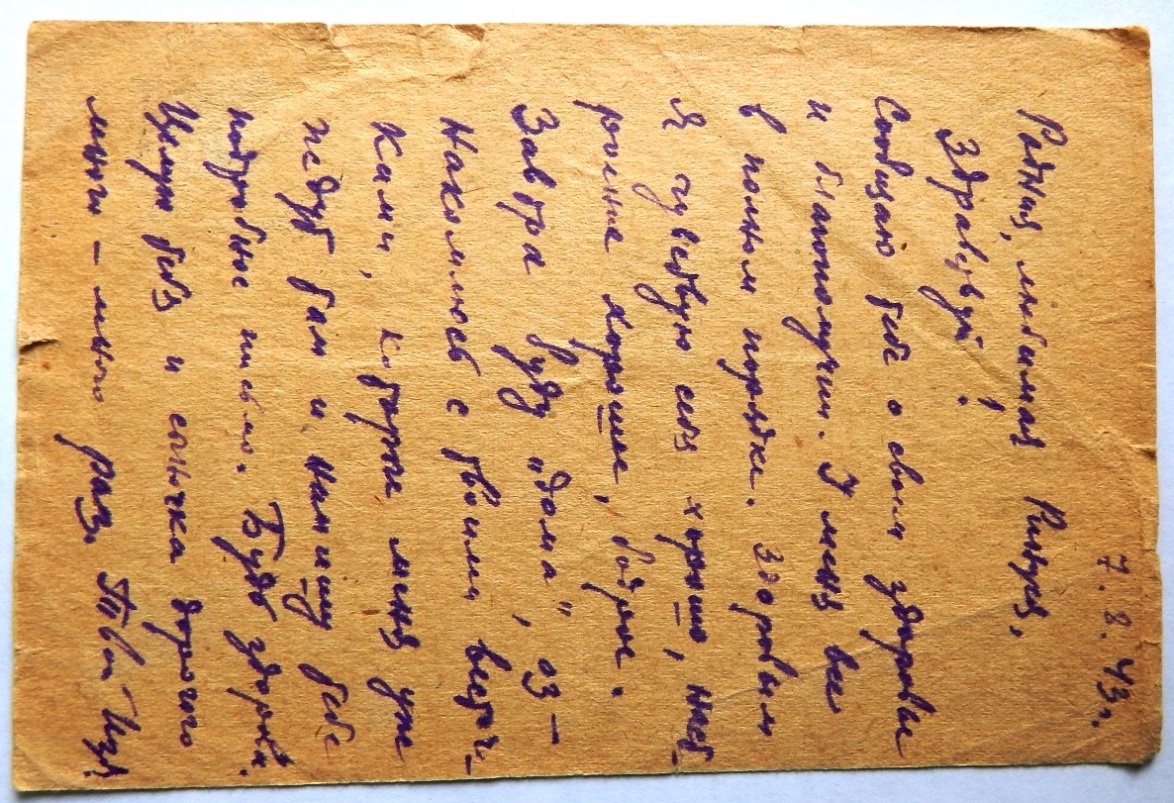 7.8.43г.
Родная, любимая Ривуся,
Здравствуй!
Сообщаю тебе о своем здоровье
и благополучии. У меня все
в полном порядке. Здоровьем
я чувствую себя хорошо, наст-
роение хорошее, бодрое.
Завтра буду „дома", оз-
накомлюсь с твоими весточ-
ками, которые меня уже
ждут там и напишу тебе
подробное письмо. Будь здорова.
Целую тебя и сыночка дорогого
много-много раз. Твой